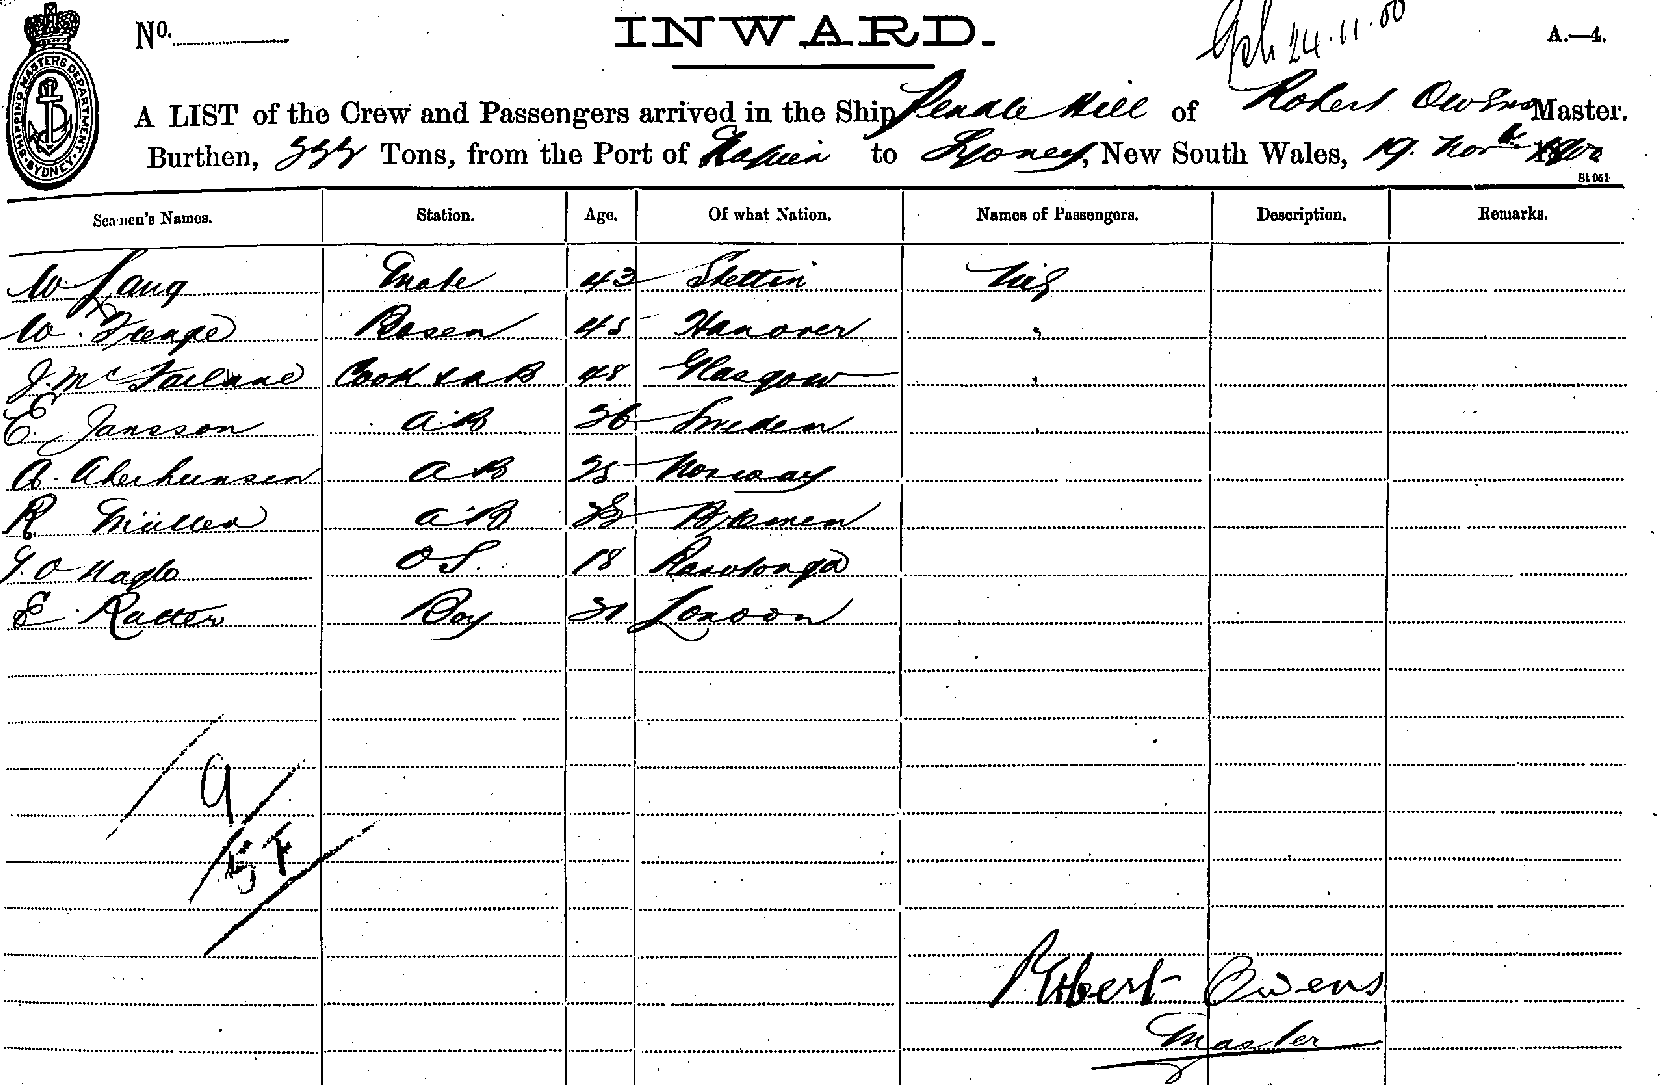 No.
INWARD.
24.11.00
A.—4.
SHIPPING MASTERS DEPARTMENT SYDNEY
A LIST of the Crew and Passengers arrived in the Ship Pendle Hill of Robert Owens Master.
Burthen, Tons, from the Port of Napier to Sydney, New South Wales, 19. Nov
Seamen's Names. Station. Age. Of what Nation. Names of Passengers. Description. Remarks.
W Lang Mate 43 Stettin Nil
W. Bosen 45 Hanover "
J. McFarlane Cook & AB 48 Glasgow "
E. Jansson A.B 36 Sweden "
A. AB 25 Norway
R. Müller A.B Bremen
O.S. 18 Rarotonga
E. Rutter Boy London
9
Robert Owens
Master